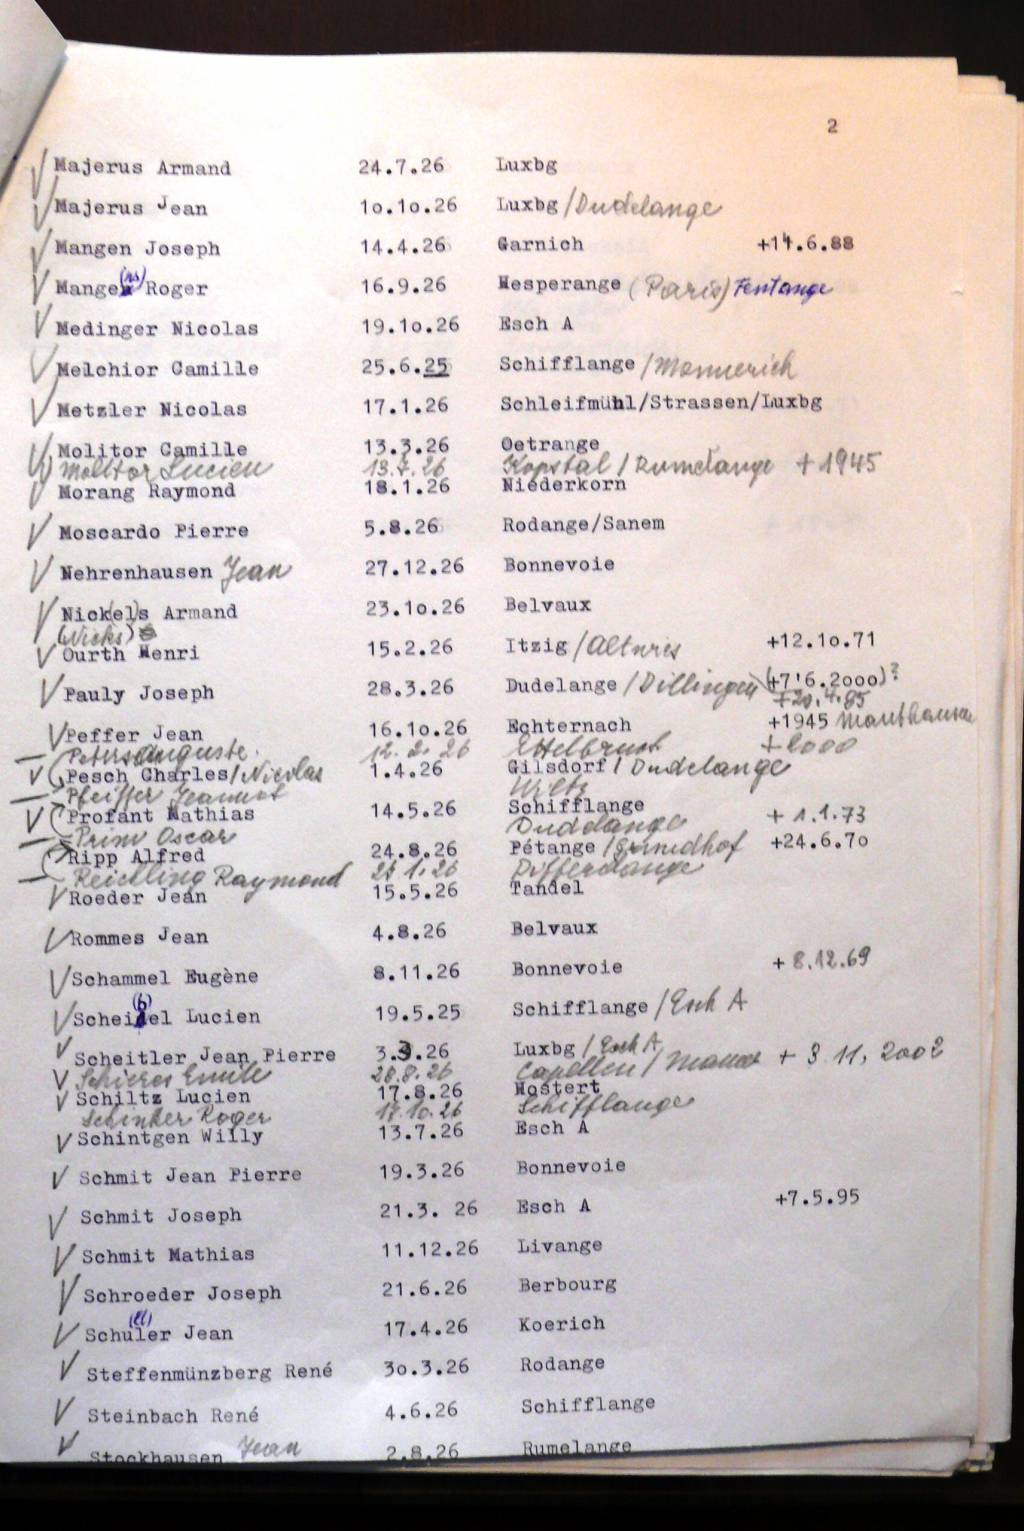 2
Majerus Armand 24.7.26 Luxbg
Majerus Jean 1o.1o.26 Luxbg /Dudelange
Mangen Joseph 14.4.26 Garnich +14.6.88
Mange (ns) Roger 16.9.26 Hesperange (Paris) Fentange
Medinger Nicolas 19.1o.26 Esch A
Melchior Camille 25.6.25 Schifflange /Monnerich
Metzler Nicolas 17.1.26 Schleifmühl/Strassen/Luxbg
Molitor Camille 13.3.26 Oetrange
Molitor Lucien 13.7.26 Kopstal / Rumelange + 1945
Morang Raymond 18.1.26 Niederkorn
Moscardo Pierre 5.8.26 Rodange/Sanem
Nehrenhausen Jean 27.12.26 Bonnevoie
Nick(el)s Armand 23.1o.26 Belvaux
(Nicks)
Ourth Henri 15.2.26 Itzig /Altwies +12.1o.71
Pauly Joseph 28.3.26 Dudelange /Dillingen (+7'6.2ooo)?
+20.4.85
Peffer Jean 16.1o.26 Echternach +1945 Mauthausen
Peters Auguste 12.2.26 Ettelbruck +2000
Pesch Charles/Nicolas 1.4.26 Gilsdorf / Dudelange
Pfeiffer Jeannot Wiltz
Profant Mathias 14.5.26 Schifflange + 1.1.73
Prim Oscar Dudelange
Ripp Alfred 24.8.26 Pétange /Grundhof +24.6.7o
Reickling Raymond 1.26 Differdange
Roeder Jean 15.5.26 Tandel
Rommes Jean 4.8.26 Belvaux
Schammel Eugène 8.11.26 Bonnevoie + 8.12.69
(b)
Scheidel Lucien 19.5.25 Schifflange /Esch A
Scheitler Jean Pierre 3.3.26 Luxbg / Esch A
Schieres Emile 20.8.26 Capellen / Mamer + 3.11.2002
Schiltz Lucien 17.8.26 Hostert
Schinker Roger 17.10.26 Schifflange
Schintgen Willy 13.7.26 Esch A
Schmit Jean Pierre 19.3.26 Bonnevoie
Schmit Joseph 21.3. 26 Esch A +7.5.95
Schmit Mathias 11.12.26 Livange
Schroeder Joseph 21.6.26 Berbourg
(ll)
Schuler Jean 17.4.26 Koerich
Steffenmünzberg René 3o.3.26 Rodange
Steinbach René 4.6.26 Schifflange
Stockhausen Jean 2.8.26 Rumelange